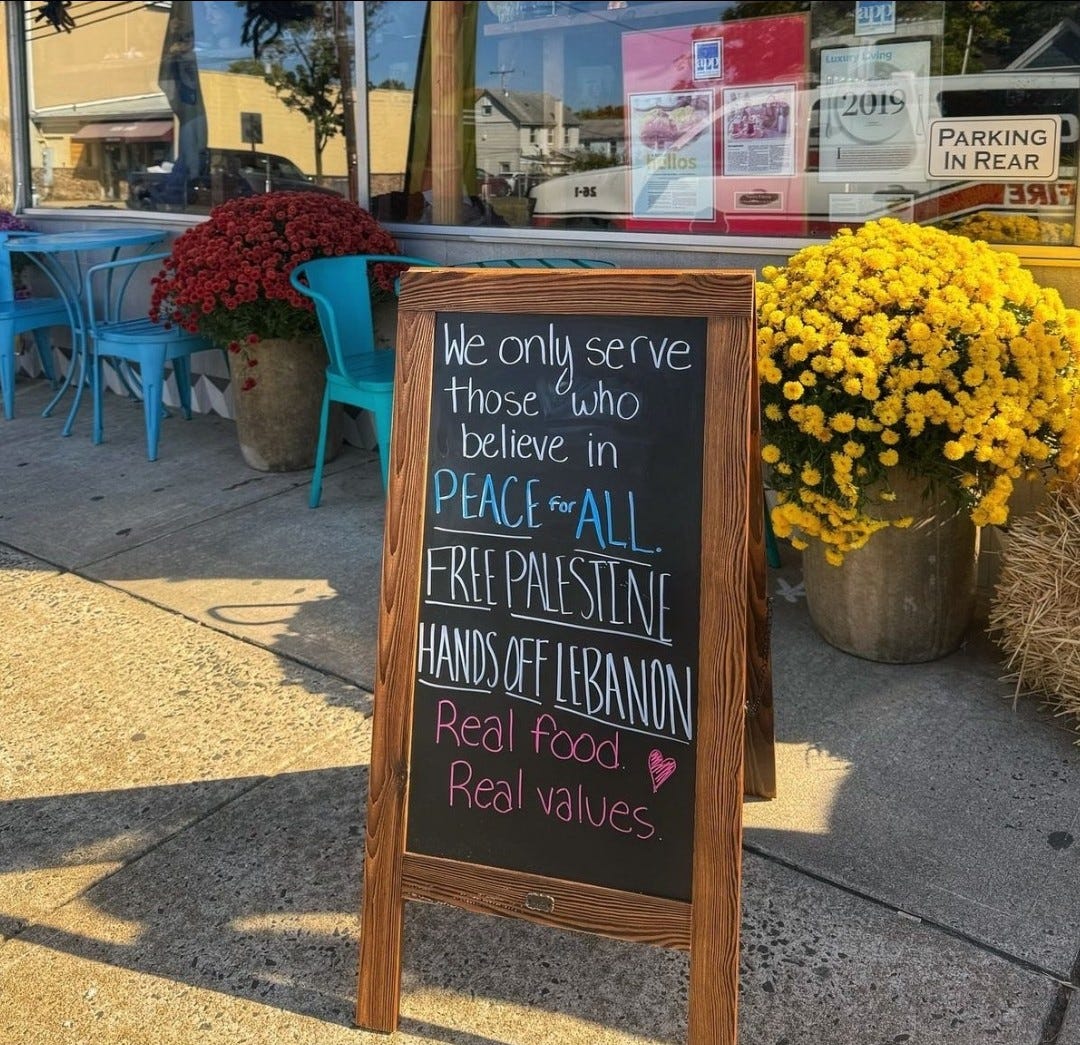 app
app
Luxury Living
2019
hellos
PARKING
IN REAR
26-1
FIRE
We only serve
those who
believe in
PEACE for ALL.
FREE PALESTINE
HANDS OFF LEBANON
Real food.
Real values.